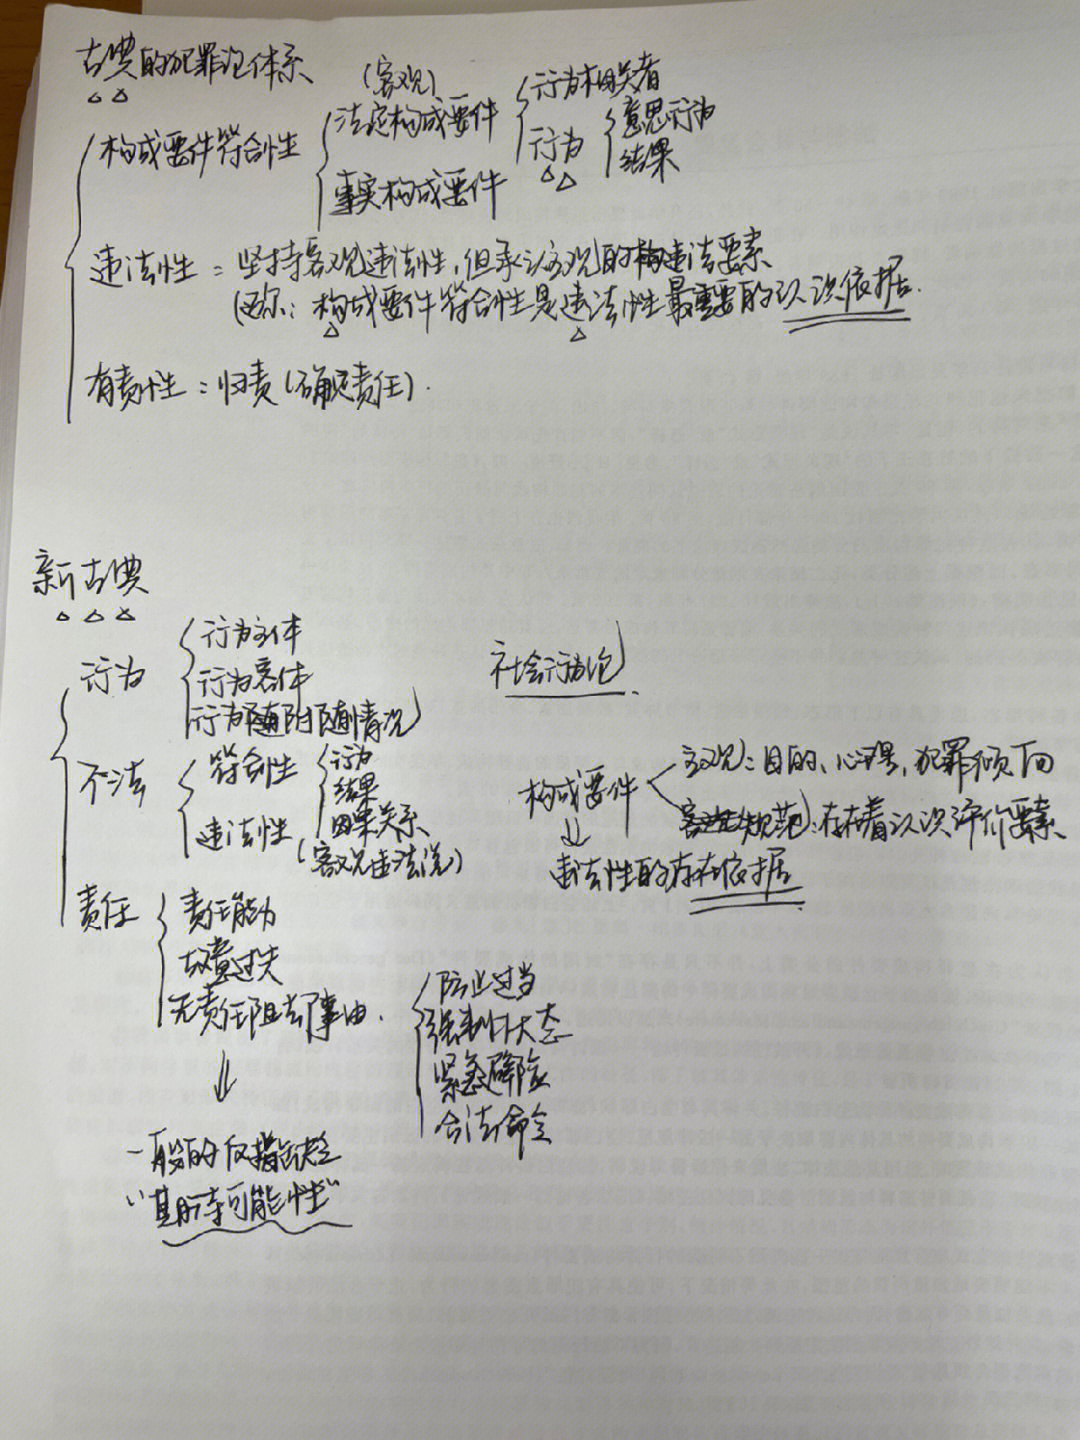 古典的犯罪论体系
构成要件符合性
(客观)
法定构成要件
行为相关者
行为
意思行为
结果
事实构成要件
违法性：坚持客观违法性,但承认主观的构违法要素
构成要件符合性是违法性最重要的认识依据.
有责性：归责(确定责任).
新古典
行为
行为主体
行为客体
行为随附随情况
社会行为论
不法
符合性
行为
结果
因果关系
违法性
(客观违法说)
构成要件
主观：目的、心理,犯罪倾向
存在着认识评价要素
违法性的存在依据
责任
责任能力
故意过失
无责任阻却事由.
防止过当
强制状态
紧急避险
合法命令
一般的仅指缺乏
"期待可能性"